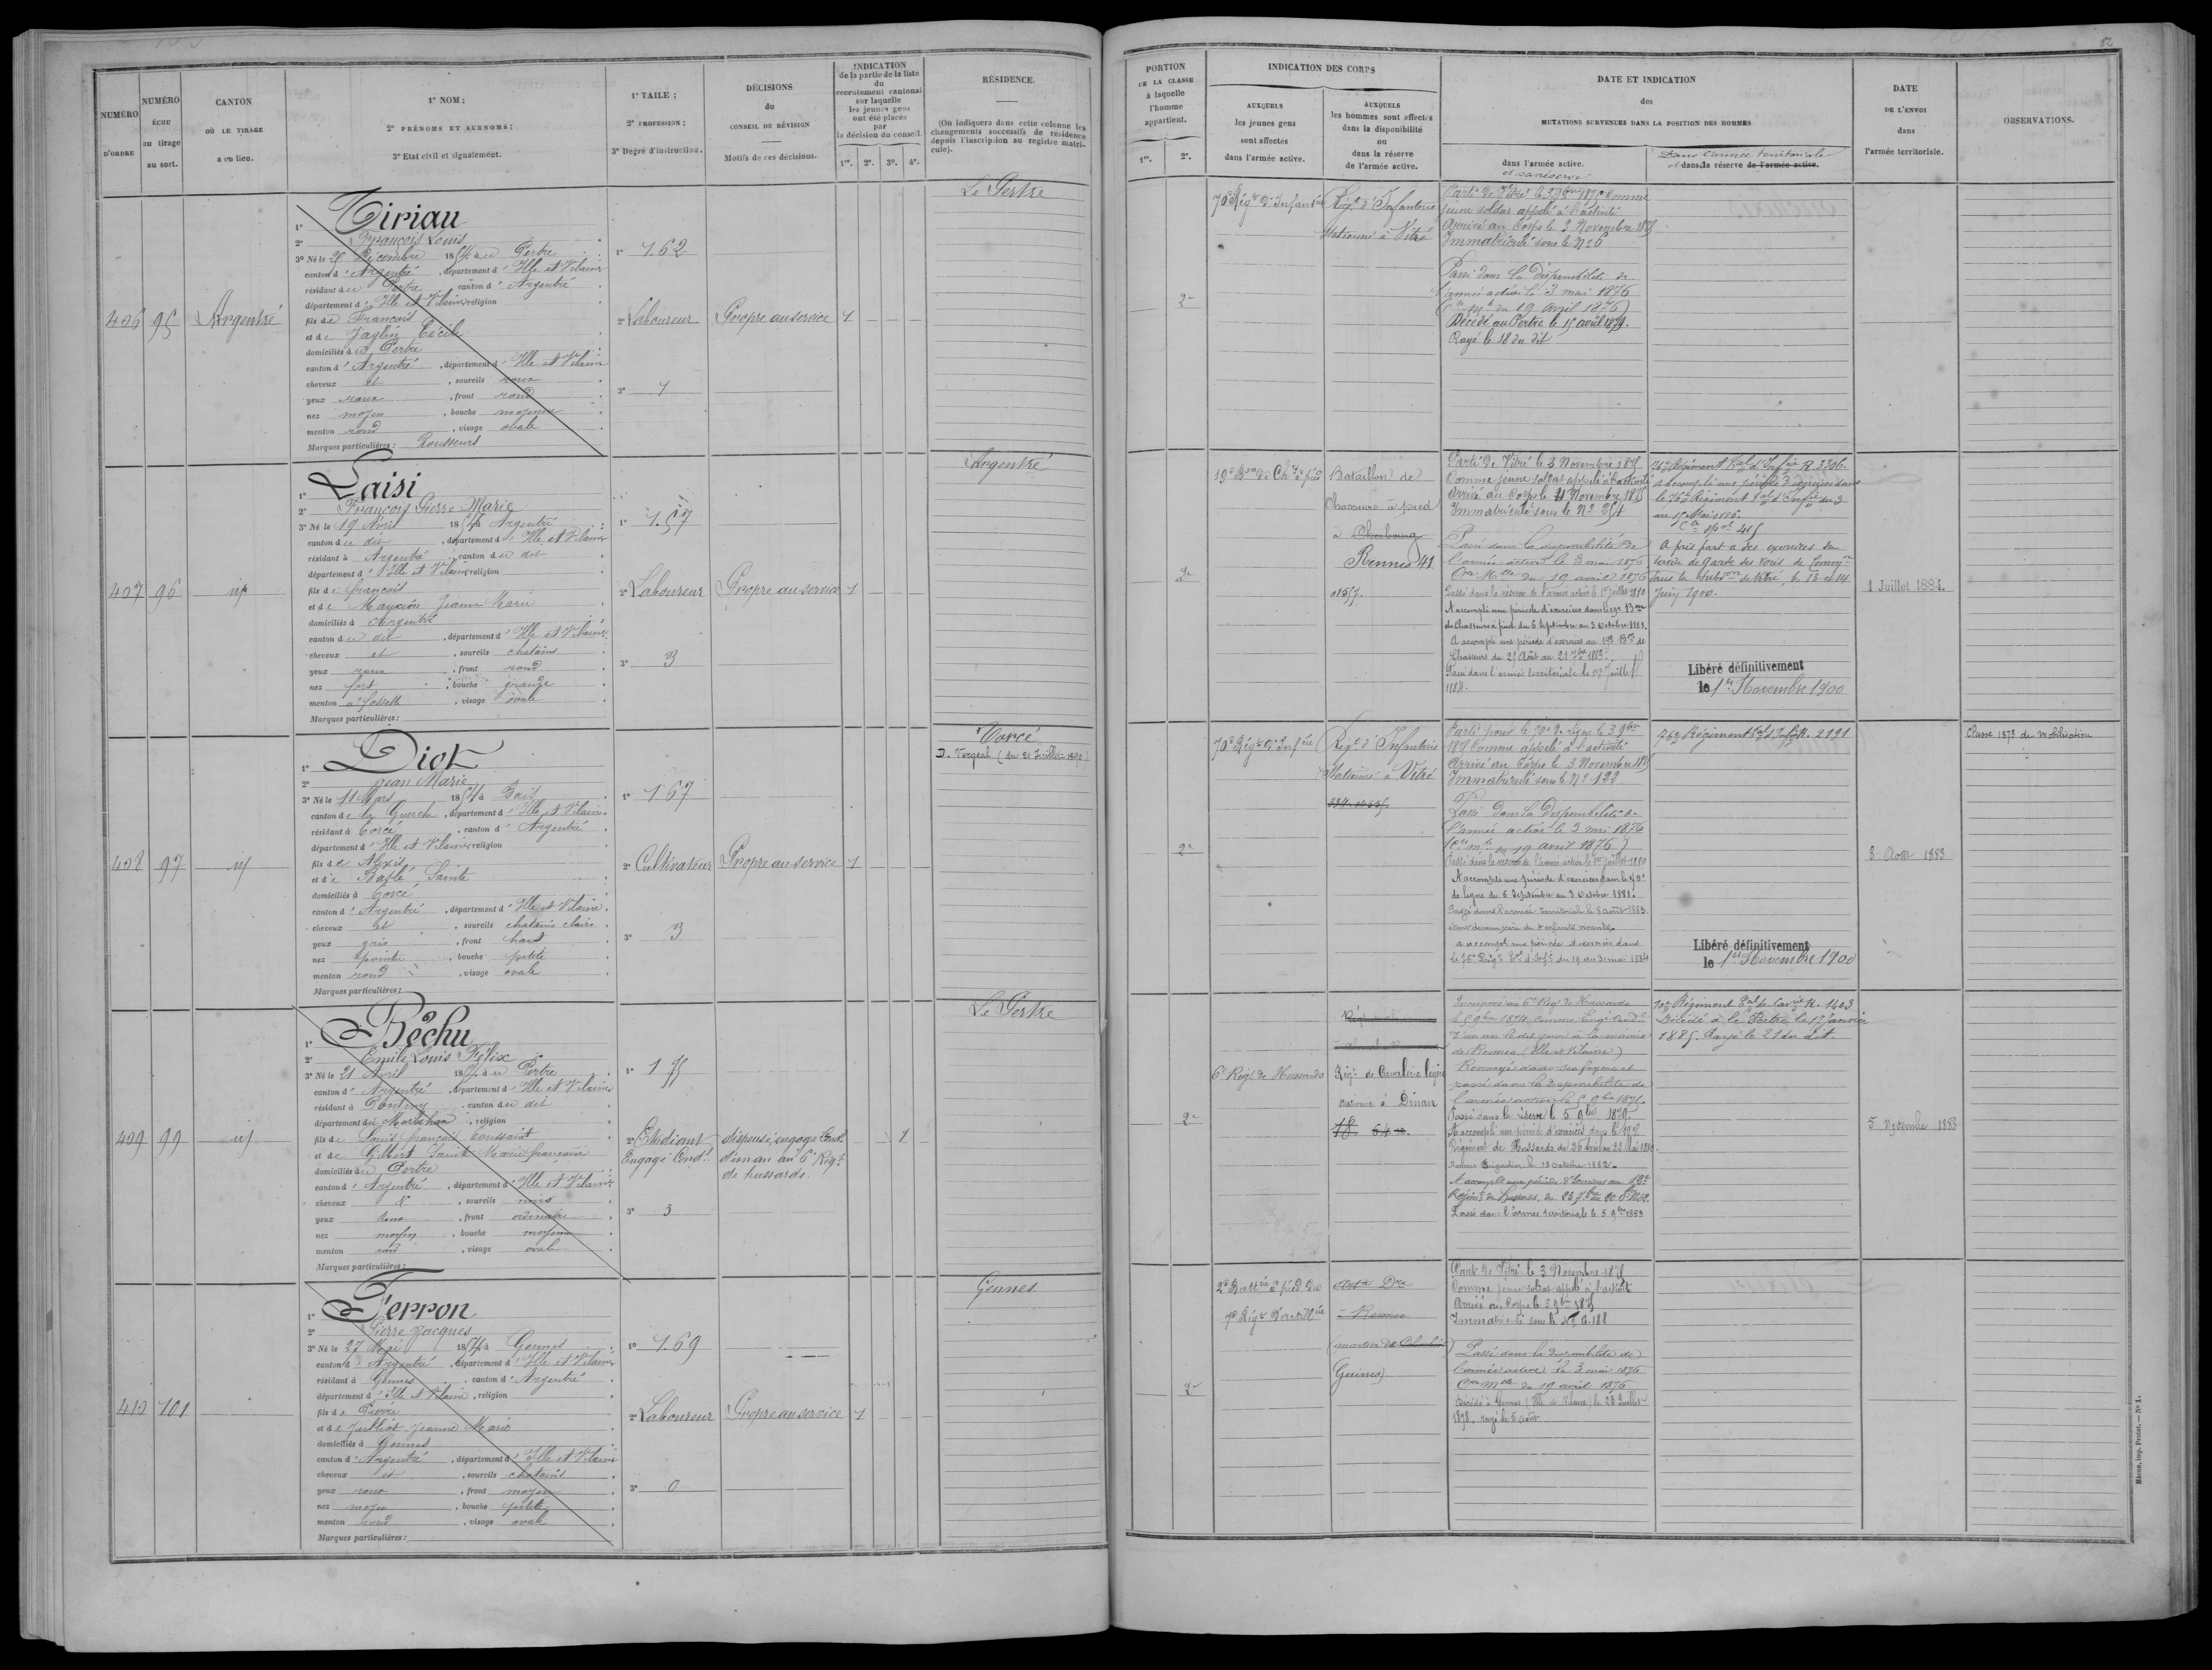 NUMÉRO D'ORDRE
NUMÉRO ÉCHU au tirage au sort.
CANTON OÙ LE TIRAGE a eu lieu.
1° NOM;
2° PRÉNOMS ET SURNOMS;
3° Etat civil et signalement.
1° TAILE;
2° PROFESSION;
3° Degré d'instruction.
DÉCISIONS du CONSEIL DE RÉVISION
Motifs de ces décisions.
INDICATION
de la partie de la liste
du
recrutement cantonal
sur laquelle
les jeunes gens
ont été placés
par
la décision du conseil.
1re. 2e. 3e. 4e.
RÉSIDENCE.
(On indiquera dans cette colonne les
changements successifs de résidence
depuis l'inscription au registre matri-
cule).
406 95 Argentré
1° Tiriau
2° François Louis
3° Né le 28 Décembre 1854 à u Pertre
canton d' Argentré, département d' Ille et Vilaine
résidant à u Pertre canton d' Argentré
département d' Ille et Vilaine religion
fils de François
et de Jaglin Cécile
domiciliés à u Pertre
canton d' Argentré, département d' Ille et Vilaine
cheveux et, sourcils roux
yeux roux, front rond
nez moyen, bouche moyenne
menton rond, visage ovale
Marques particulières: Rousseurs
1° 1.62
2° Laboureur
3° 1
Propre au service 1
Le Pertre
407 96
1° Laisi
2° François Pierre Marie
3° Né le 19 Avril 1854 à Argentré
canton du dit, département d' Ille et Vilaine
résidant à Argentré canton du dit
département d' Ille et Vilaine religion
fils de François
et de Jeanne Marie
domiciliés à Argentré
canton du dit, département d' Ille et Vilaine
cheveux et, sourcils chatains
yeux roux, front rond
nez fort, bouche grande
menton à fossette, visage ovale
Marques particulières:
1° 1.57
2° Laboureur
3° 3
Propre au service 1
Argentré
408 97
1° Diot
2° Jean Marie
3° Né le 11 Mars 1854 à Bais
canton de la Guerche, département d' Ille et Vilaine
résidant à Torcé, canton d' Argentré
département d' Ille et Vilaine religion
fils de Alexis
et de Baslé Sainte
domiciliés à Torcé
canton d' Argentré, département d' Ille et Vilaine
cheveux et, sourcils chatains clairs
yeux gris, front haut
nez pointu, bouche petite
menton rond, visage ovale
Marques particulières:
1° 1.67
2° Cultivateur
3° 3
Propre au service 1
Torcé
D. Vergeal (du 21 Juillet 1890)
409 99
1° Béchu
2° Emile Louis Félix
3° Né le 21 Avril 1854 à u Pertre
canton d' Argentré, département d' Ille et Vilaine
résidant à Pontivy canton du dit
département du Morbihan, religion
fils de Louis François Toussaint
et de Gilbert Sainte Marie Françoise
domiciliés à u Pertre
canton d' Argentré, département d' Ille et Vilaine
cheveux &, sourcils noirs
yeux roux, front ordinaire
nez moyen, bouche moyenne
menton rond, visage ovale
Marques particulières:
1° 1.75
2° Etudiant
Engagé Condl
3° 3
dispensé, engagé Condl
d'un an au 6e Régt
de hussards. 1
Le Pertre
410 101
1° Ferron
2° Pierre Jacques
3° Né le 27 Mai 1854 à Gennes
canton d' Argentré, département d' Ille et Vilaine
résidant à Gennes, canton d' Argentré
département d' Ille et Vilaine, religion
fils de Pierre
et de Julliot Jeanne Marie
domiciliés à Gennes
canton d' Argentré, département d' Ille et Vilaine
cheveux et, sourcils chatains
yeux roux, front moyen
nez moyen, bouche petite
menton rond, visage ovale
Marques particulières:
1° 1.69
2° Laboureur
3° 0
Propre au service 1
Gennes
82
PORTION
DE LA CLASSE
à laquelle
l'homme
appartient.
1re. 2e.
INDICATION DES CORPS
AUXQUELS
les jeunes gens
sont affectés
dans l'armée active.
AUXQUELS
les hommes sont affectés
dans la disponibilité
ou
dans la réserve
de l'armée active.
DATE ET INDICATION
des
MUTATIONS SURVENUES DANS LA POSITION DES HOMMES
dans l'armée active.
et sa réserve
Dans l'armée territoriale
et dans la réserve de l'armée active.
DATE
DE L'ENVOI
dans
l'armée territoriale.
OBSERVATIONS.
2e
70e Régt d'Infanterie
Régt d'Infanterie
Stationné à Vitré
Parti de Vitré le 3 9bre 1875 comme
jeune soldat appelé à l'activité
Arrivé au Corps le 3 Novembre 1875
Immatriculé sous le No 6
Passé dans la Disponibilité de
l'armée active le 3 mai 1876
(Cre Mlle du 19 avril 1876)
Décédé au Pertre le 15 avril 1879.
Rayé le 18 du dit
2e
19e Bon de Chrs à pied
Bataillon de
Chasseurs à pied
à Cherbourg
Rennes 41
0157.
Parti de Vitré le 3 Novembre 1875
Comme jeune soldat appelé à l'activité
Arrivé au Corps le 11 Novembre 1875
Immatriculé sous le No 254
Passé dans la disponibilité de
l'armée active le 3 mai 1876
Cre Mlle du 19 avril 1876
Passé dans la réserve de l'armée active le 1er Juillet 1880
A accompli une période d'exercices dans le 19e Bon
de Chasseurs à pied du 6 Septembre au 3 Octobre 1881.
A accompli une période d'exercices au 19e Bon de
Chasseurs du 25 Août au 21 7bre 1883.
Passé dans l'armée territoriale le 1er Juillet
1884.
76e Régiment Tal d'Infie R. 3306.
a accompli une période d'exercices dans
le 76e Régiment Tal d'Infie du 3
au 15 Mai 1886.
A pris part à des exercices du
service de Garde des Voies de Comon
dans la Subon de Vitré, le 13 et 14
Juin 1900.
Libéré définitivement
le 1er Novembre 1900
1 Juillet 1884.
2e
70e Régt d'Infie
Régt d'Infanterie
Stationné à Vitré
Parti pour le 70e de ligne le 3 9bre
1875 Comme appelé à l'activité
Arrivé au Corps le 3 Novembre 1875
Immatriculé sous le No 132
Passé dans la Disponibilité de
l'armée active le 3 mai 1876
(Cre Mlle du 19 avril 1876)
Passé dans la réserve de l'armée active le 1er Juillet 1880
A accompli une période d'exercices dans le 70e
de ligne du 6 Septembre au 3 Octobre 1881.
Passé dans l'armée territoriale le 8 août 1883
étant devenu père de 4 enfants vivants.
a accompli une période d'exercices dans
le 76e Régt Tal d'Infie du 19 au 31 mai 1884
76e Régiment Tal d'Infie R. 2191
Libéré définitivement
le 1er Novembre 1900
8 Août 1883
Classe 1873 de mobilisation
2e
6e Régt de Hussards
Régt de Cavalerie légère
stationné à Dinan
18 64
Incorporé au 6e Régt de Hussards
le 5 9bre 1874, comme Engé Condl
d'un an le dit jour à la mairie
de Rennes (Ille et Vilaine)
Renvoyé dans ses foyers et
passé dans la disponibilité de
l'armée active le 5 9bre 1875.
Passé dans la réserve le 5 9bre 1879.
A accompli une période d'exercices dans le
Régiment de Hussards du 26 Avril au 22 Mai 1880.
Nommé Brigadier le 13 octobre 1882.
A accompli une période d'Exercices au
Régimt de Hussards, du
Passé dans l'armée territoriale le 5 9bre 1883
10e Régiment Tal de Cavie R. 1403
Décédé à Le Pertre le 17 Janvier
1885. Rayé le 21 du dit.
5 Novembre 1883
2e
2e Battie à pied du
Régt d'Artillie
Artie Dre
à Rennes
Guines)
Parti de Vitré le 3 Novembre 1875
Comme jeune soldat appelé à l'activité
Arrivé au Corps le 3 9bre 1875
Immatriculé sous le No a.188
Passé dans la Disponibilité de
l'armée active le 3 mai 1876
Cre Mlle du 19 avril 1876
Décédé à Gennes (Ille et Vilaine) le 23 Juillet
1878. rayé le 6 août
Mâcon, imp. Protat. — No 1.